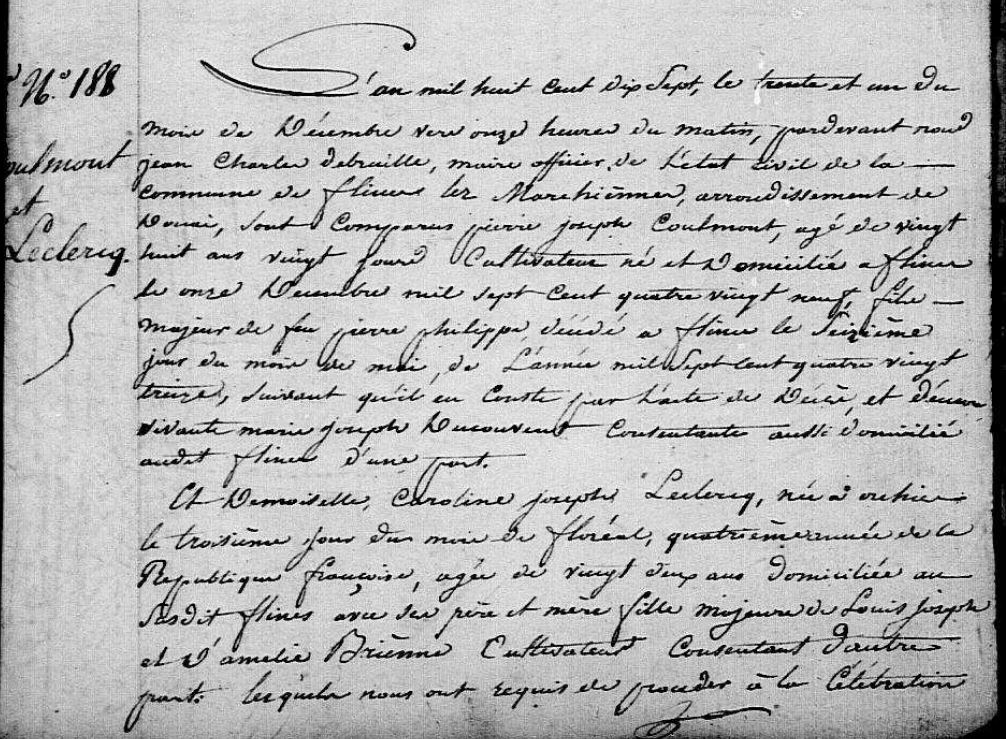 N.° 188
L'an mil huit cent dix Sept, le trente et un du
mois de Décembre vers onze heures du matin, pardevant nous
jean Charles debraille, maire officier de L'état Civil de la
oulmont
commune de flines lez Marchiennes, arrondissement de
et
Douai, sont Comparus pierre joseph Coulmont, agé de vingt
Leclercq.
huit ans vingt jours Cultivateur né et Domicilié a flines
le onze Decembre mil sept cent quatre vingt neuf, fils
majeur de feu pierre philippe, décédé a flines le Seizième
jour du mois de mai, de L'année mil Sept Cent quatre vingt
treize, suivant qu'il en Conste par L'acte de Décès, et de
vivante marie joseph Ducouvent Consentante aussi domicilié
audit flines d'une part.
Et Demoiselle, Caroline joseph Leclercq, née à orchies
le troisième jour du mois de floréal, quatrième année de la
Republique françoise, agée de vingt deux ans Domiciliée au
Susdit flines avec ses père et mère fille majeure de Louis joseph
et D'amelie Brienne Cultivateurs Consentant d'autre
part. lesquels nous ont requis de proceder à la Célébration